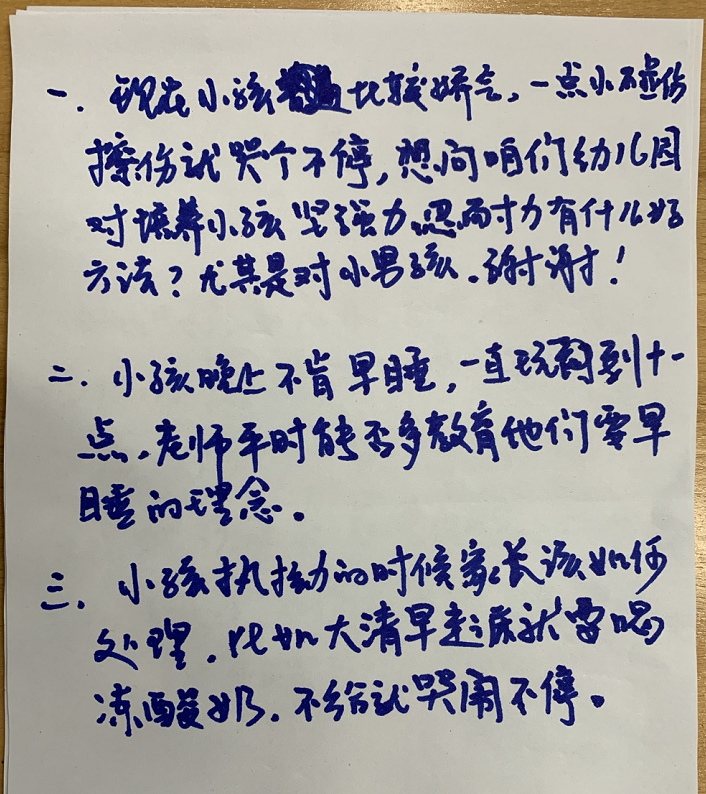 一. 现在小孩比较娇气,一点小不碰伤
擦伤就哭个不停,想问咱们幼儿园
对培养小孩坚强力、忍耐力有什么好
方法?尤其是对小男孩.谢谢!
二. 小孩晚上不肯早睡,一直玩闹到十一
点.老师平时能否多教育他们要早
睡的理念。
三. 小孩执拗的时候家长该如何
处理.比如大清早起床就要喝
冻酸奶.不给就哭闹不停。